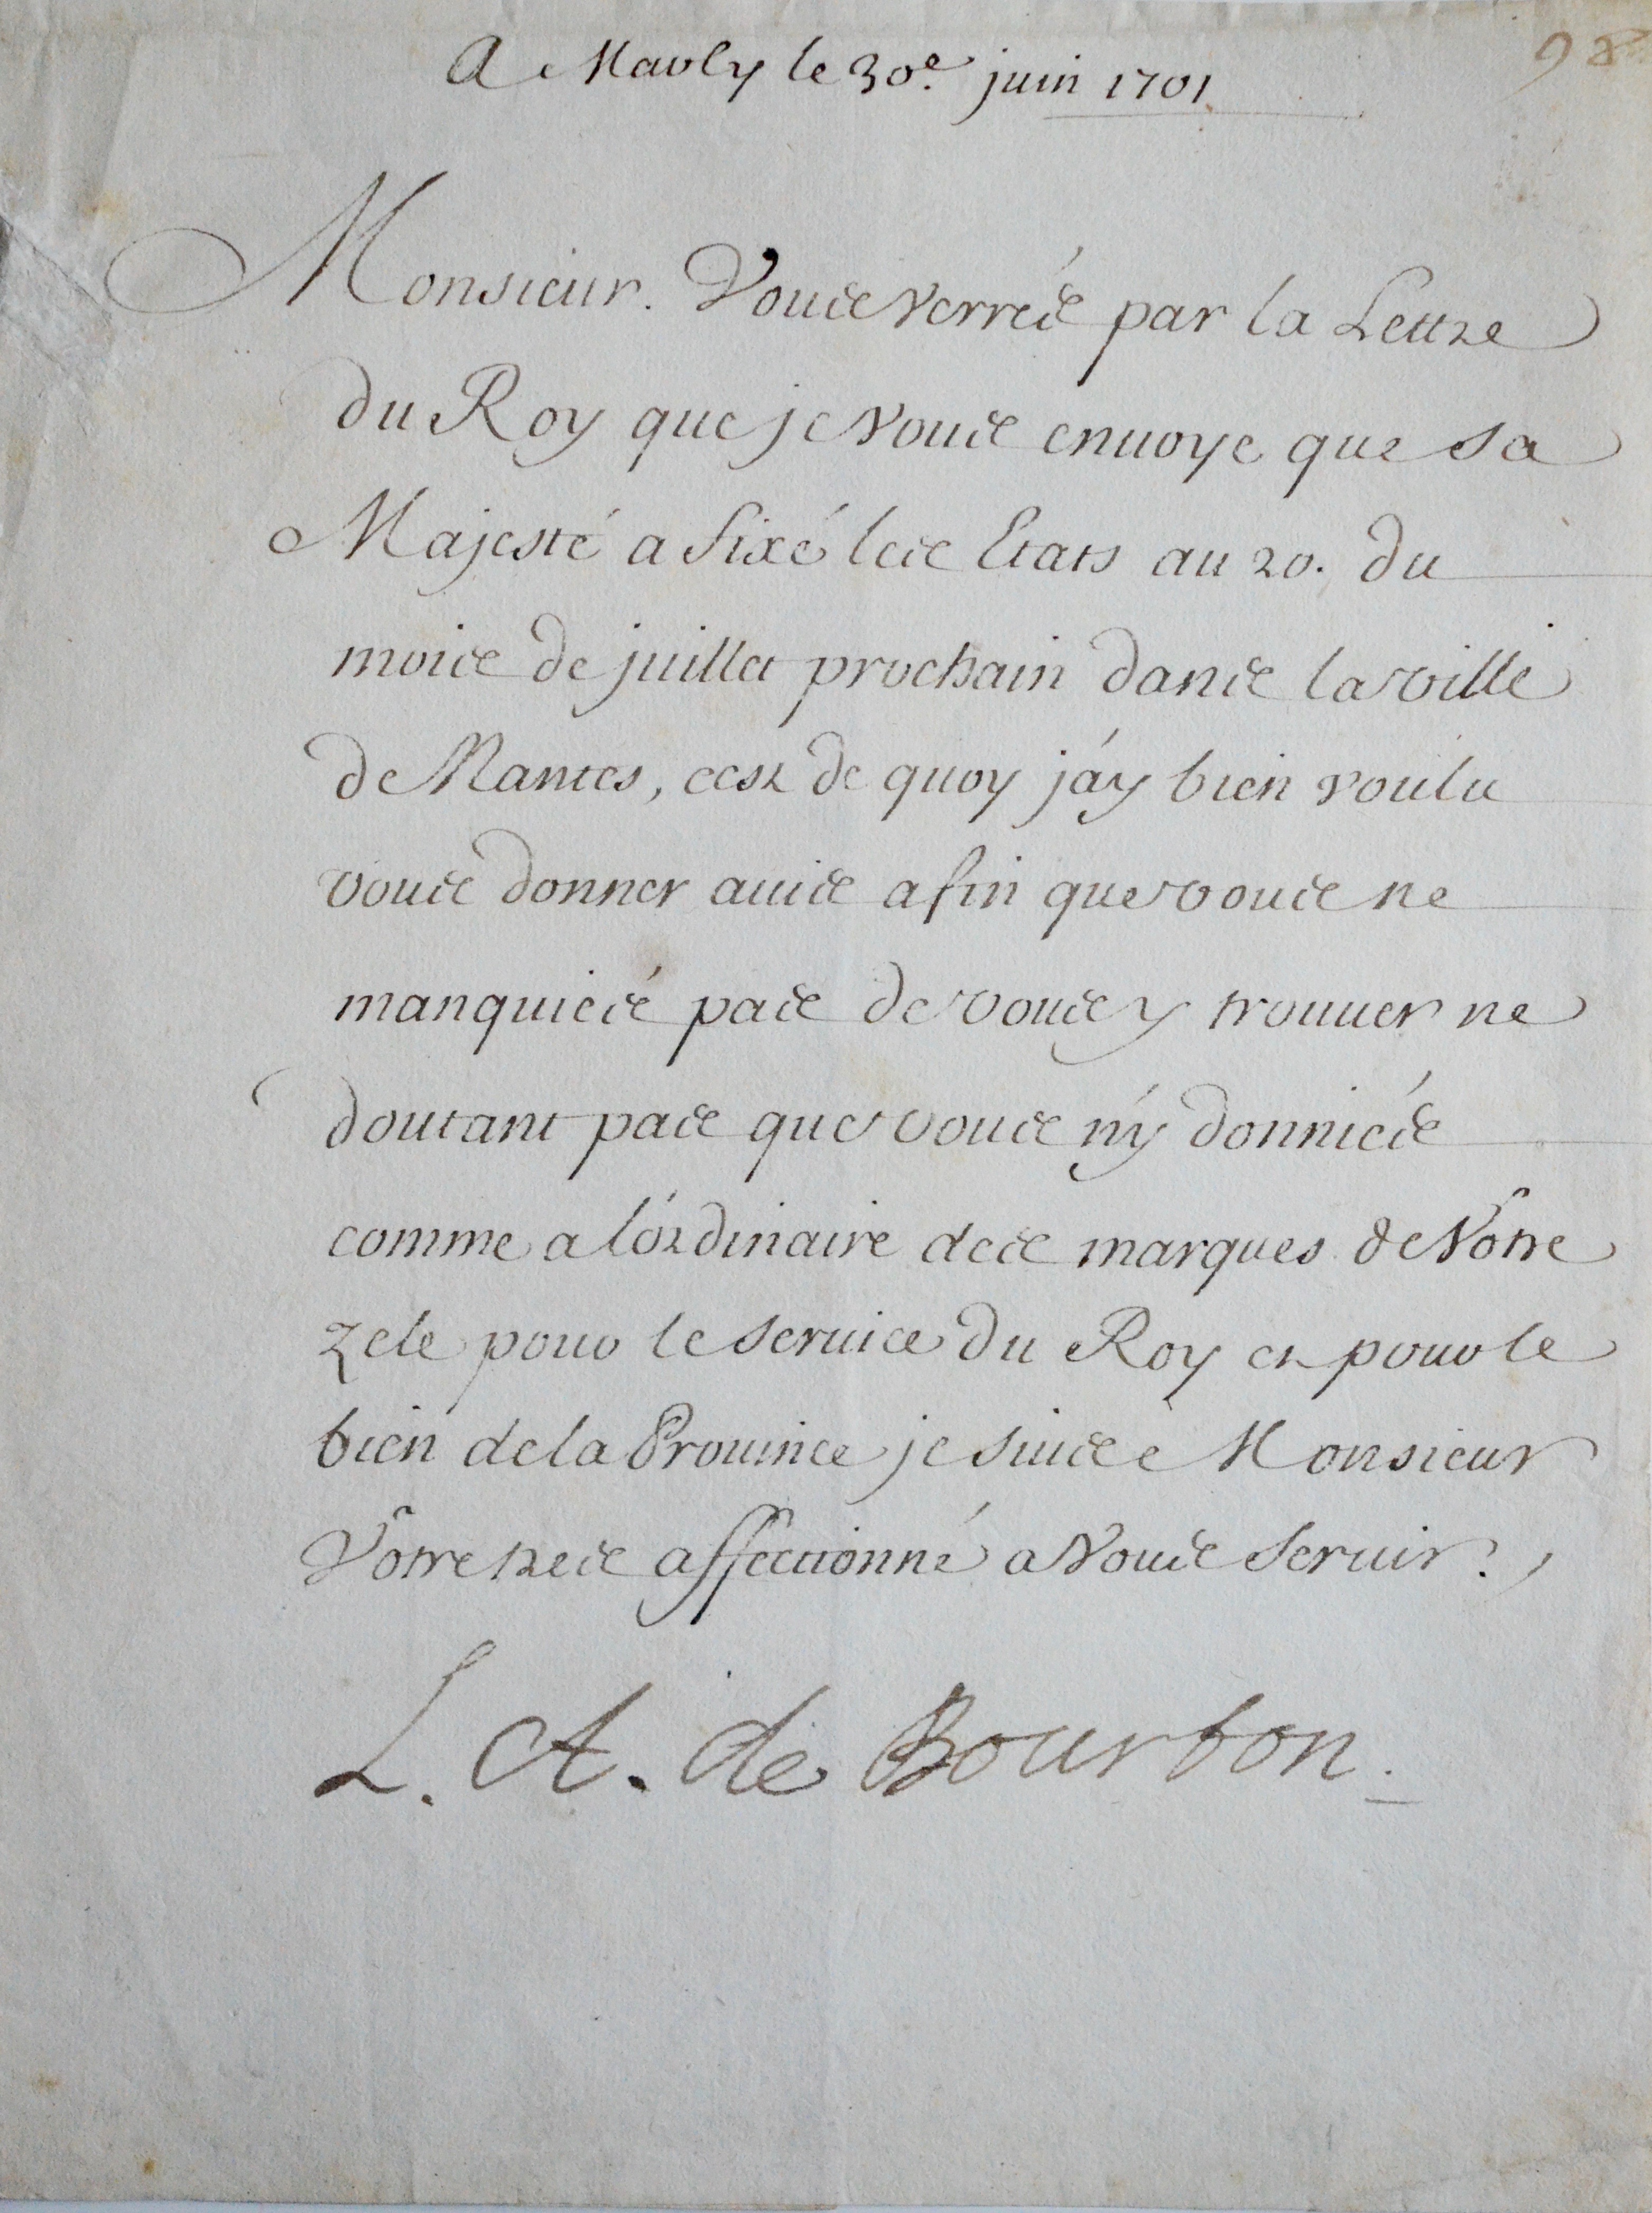 98
A Marly le 30e. juin 1701
Monsieur. Vous verrés par la Lettre
du Roy que je vous enuoye que sa
Majesté a fixé les Etats au 20. du
mois de juillet prochain dans la ville
de Nantes, cest de quoy j'ay bien voulu
vous donner auis afin que vous ne
manquiés pas de vous y trouuer ne
doutant pas que vous n'y donniés
comme a l'ordinaire des marques de Vôtre
zele pour le seruice du Roy et pour le
bien de la Prouince je suis Monsieur
Vôtre tres affectionné a vous seruir.
L. A. de Bourbon.